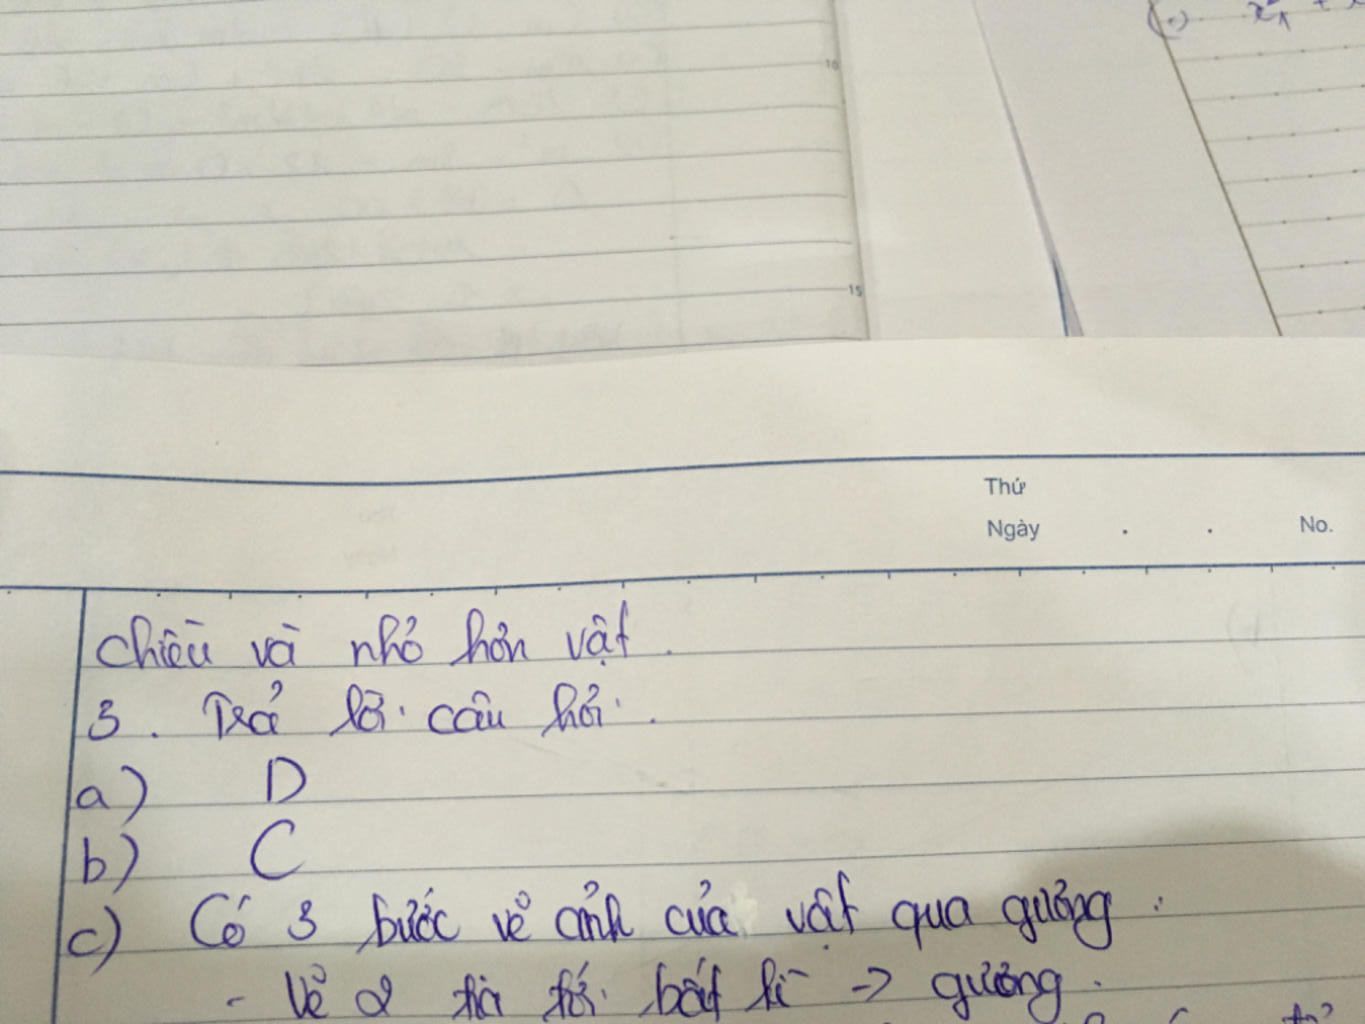 10
15
Thứ
Ngày . . No.
chiều và nhỏ hơn vật.
3. Trả lời câu hỏi.
a) D
b) C
c) Có 3 bước vẽ ảnh của vật qua gương:
- Vẽ 2 tia tới bất kì -> gương.